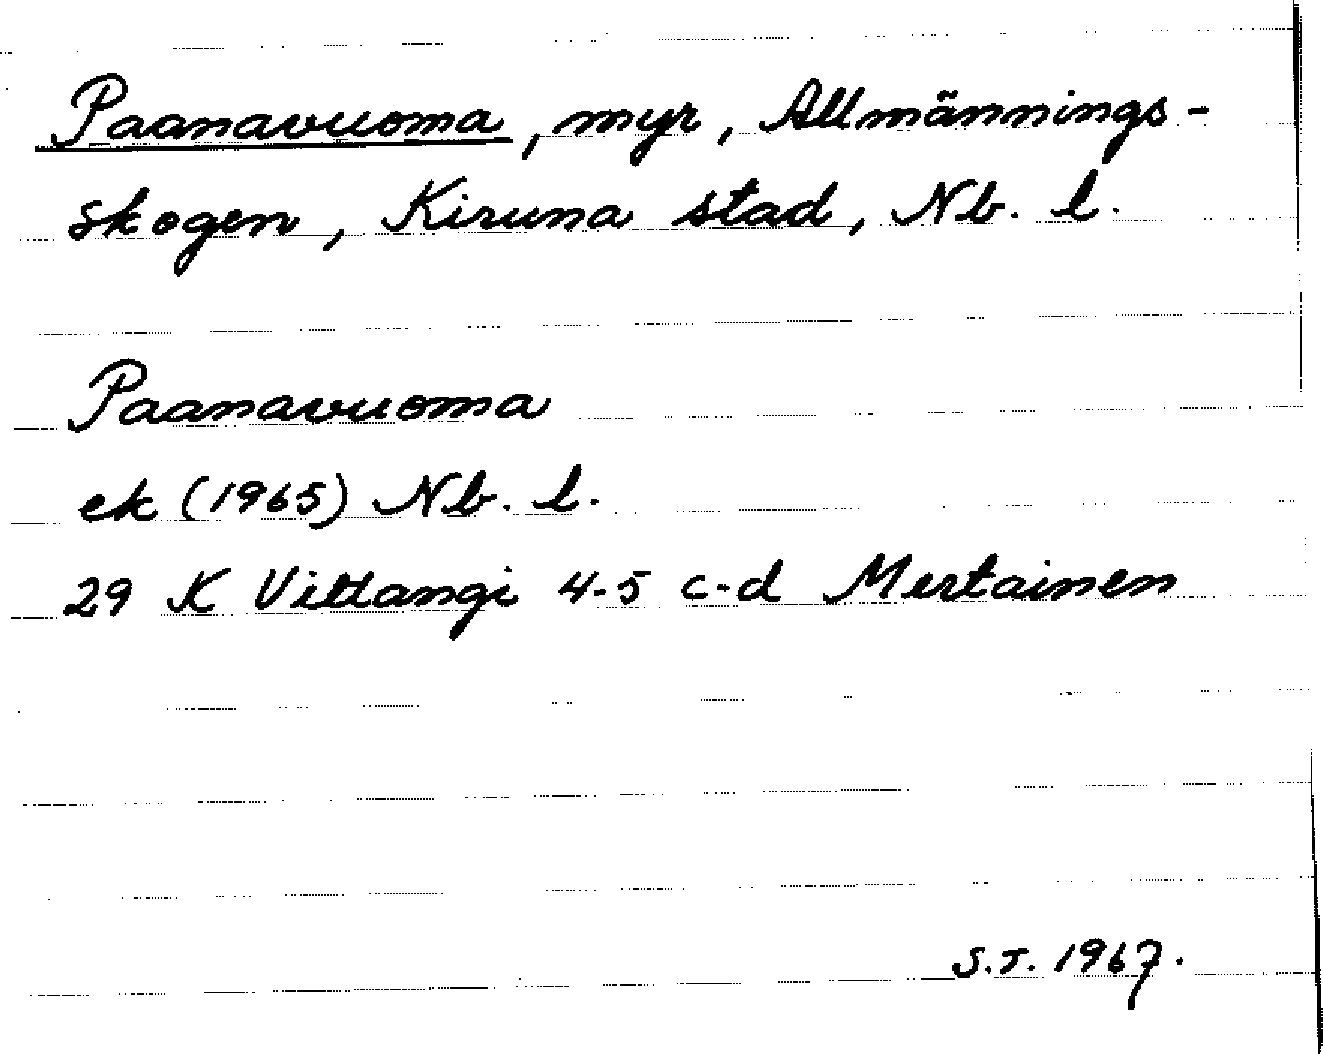 Paanavuoma, myr, Allmännings-
skogen, Kiruna stad, Nb. l.
Paanavuoma
ek (1965) Nb. l.
29 K Vittangi 4-5 c-d Mertainen
S.J. 1967.